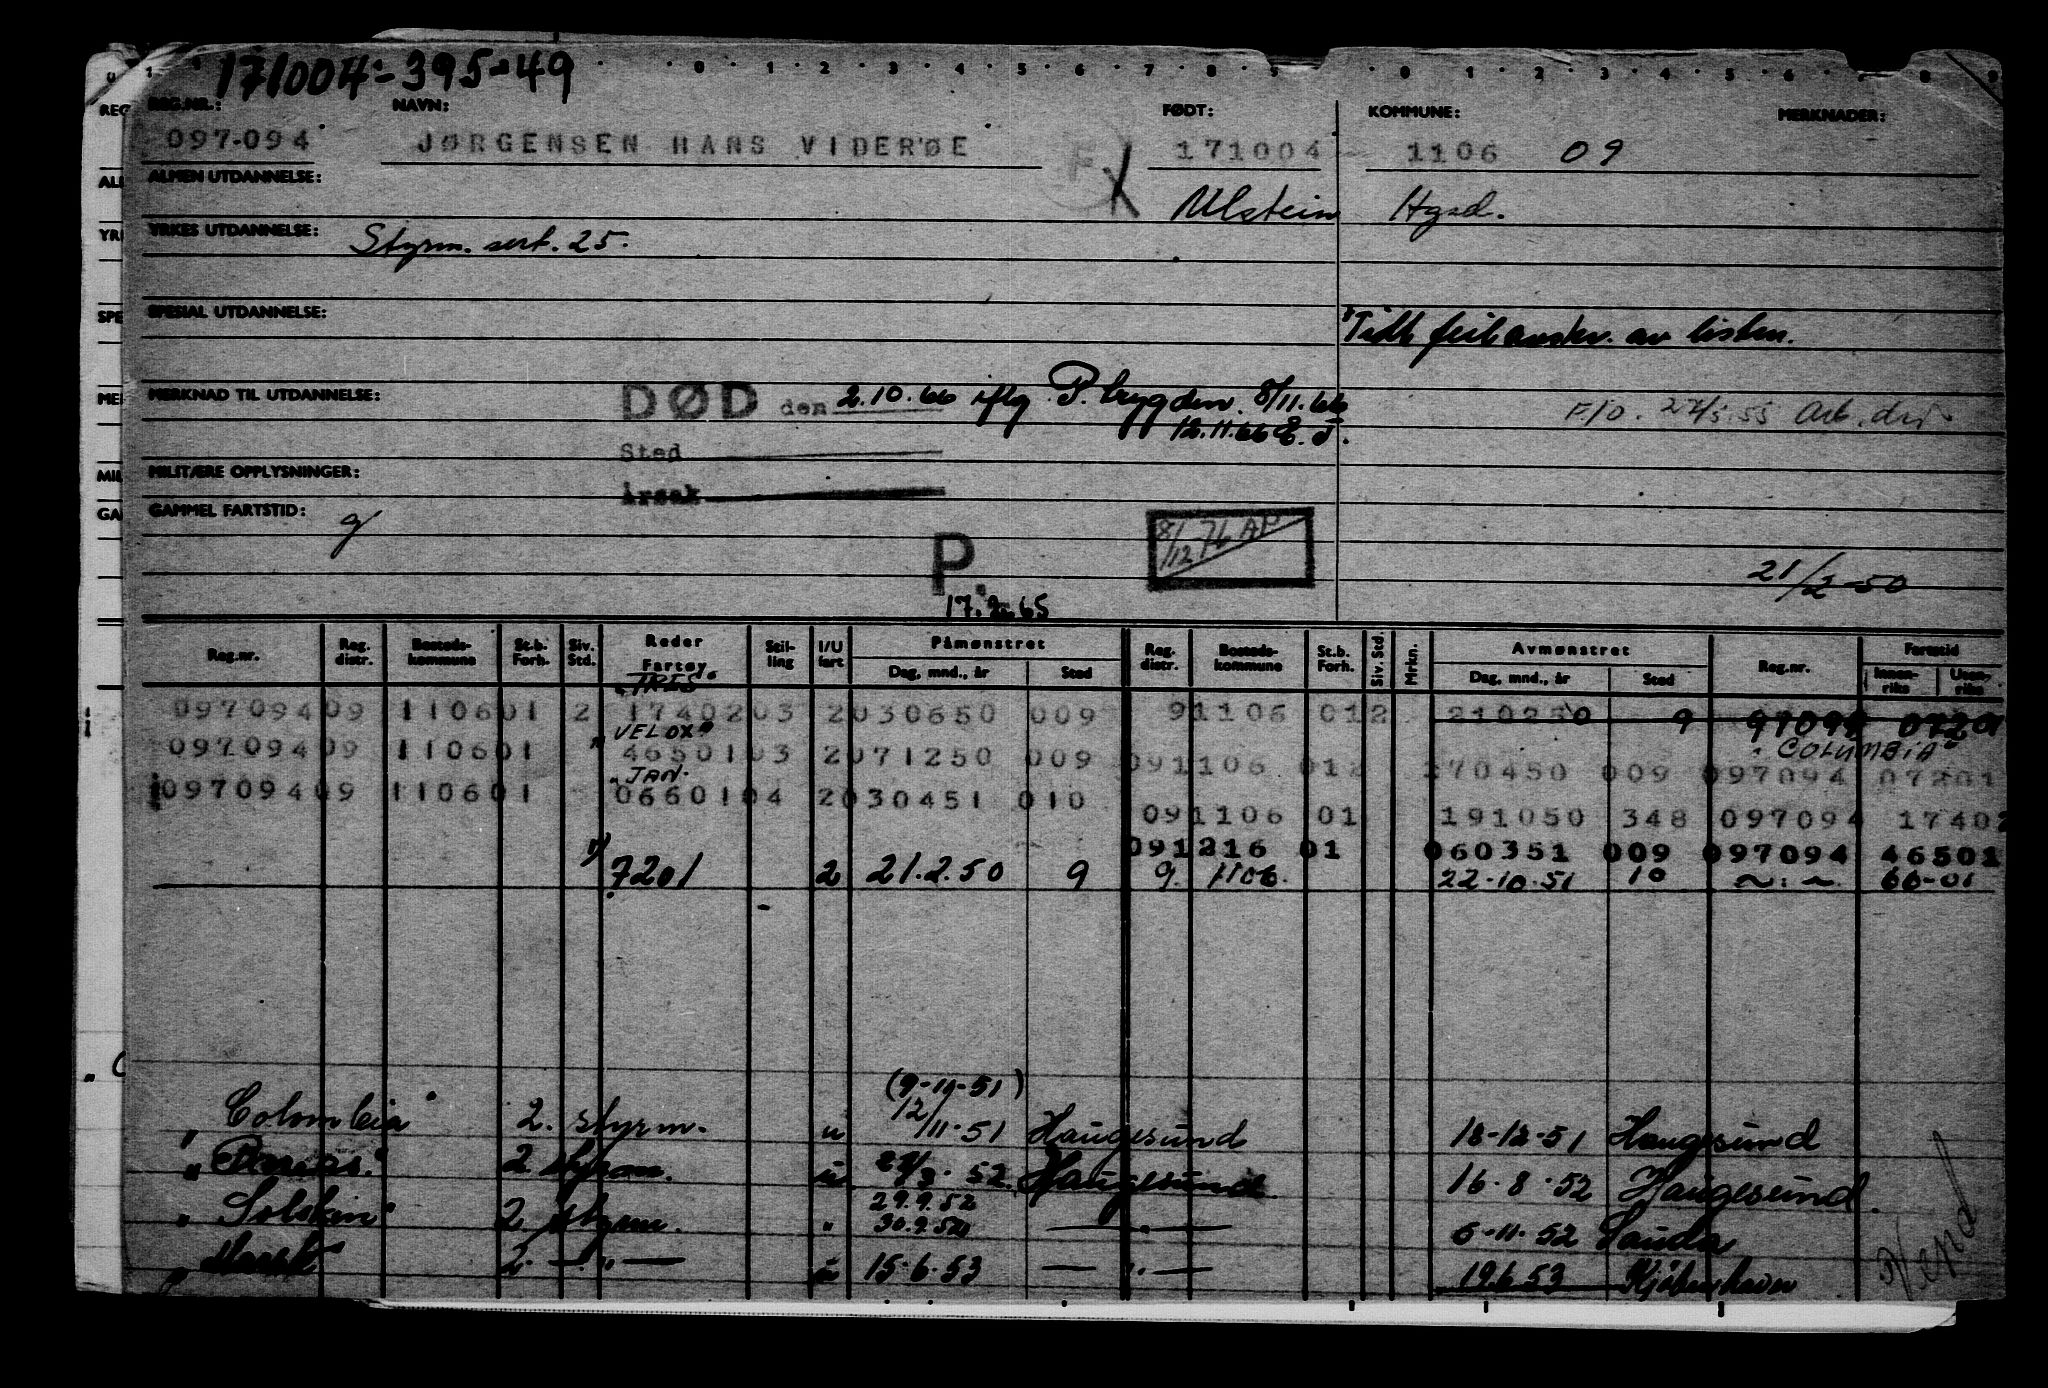 171004-395-49
0 1 2 3 4 5 6 7 8 9 0 1 2 3 4 5 6 7 8 9
REG.NR.: NAVN: FØDT: KOMMUNE: MERKNADER:
097-094 JØRGENSEN HANS VIDERØE 171004 1106 09
ALMEN UTDANNELSE: Ulstein Hgsd.
YRKES UTDANNELSE: Styrm. sert. 25.
SPESIAL UTDANNELSE:
av listen.
MERKNAD TIL UTDANNELSE: DØD den 2.10.66 iflg P. 8/11.66
12.11.66
F/O. 27/5.55 Arb. dir
Sted
MILITÆRE OPPLYSNINGER:
Årsak
GAMMEL FARTSTID: g
P.
17.2.65
8/12 76 AP
21/2-50
Reg.nr. Reg. distr. Bosteds-kommune St.b. Forh. Siv. Std. Reder Fartøy Stil-ling I/U fart Påmønstret Dag, mnd., år Sted Reg. distr. Bosteds-kommune St.b. Forh. Siv. Std Mrkn. Avmønstret Dag, mnd., år Sted Reg.nr. Farestid Innen-riks Uten-riks
097094 09 1106 01 2 1740203 2 030650 009 9 1106 01 2 210250 9 97094 07201
"VELOX" "COLUMBIA"
097094 09 1106 01 4650103 2 071250 009 091106 012 170450 009 097094 07201
"JAN"
097094 09 1106 01 0660104 2 030451 010
091106 01 191050 348 097094 17402
091216 01 060351 009 097094 46501
1) 7201 2 21.2.50 9 9. 1106. 22-10-51 10 66-01
(9-11-51)
"Colombia" 2. styrm. u 12/11-51 Haugesund 18-12-51 Haugesund
2 styrm. u 52 Haugesund 16.8.52 Haugesund.
29.9.52
"Solskin" 2 styrm. " 30.9.52 — " — 6-11-52 Sauda
2. — " — u 15.6.53 — " — 19.6.53 Kjøbenhavn
Vend